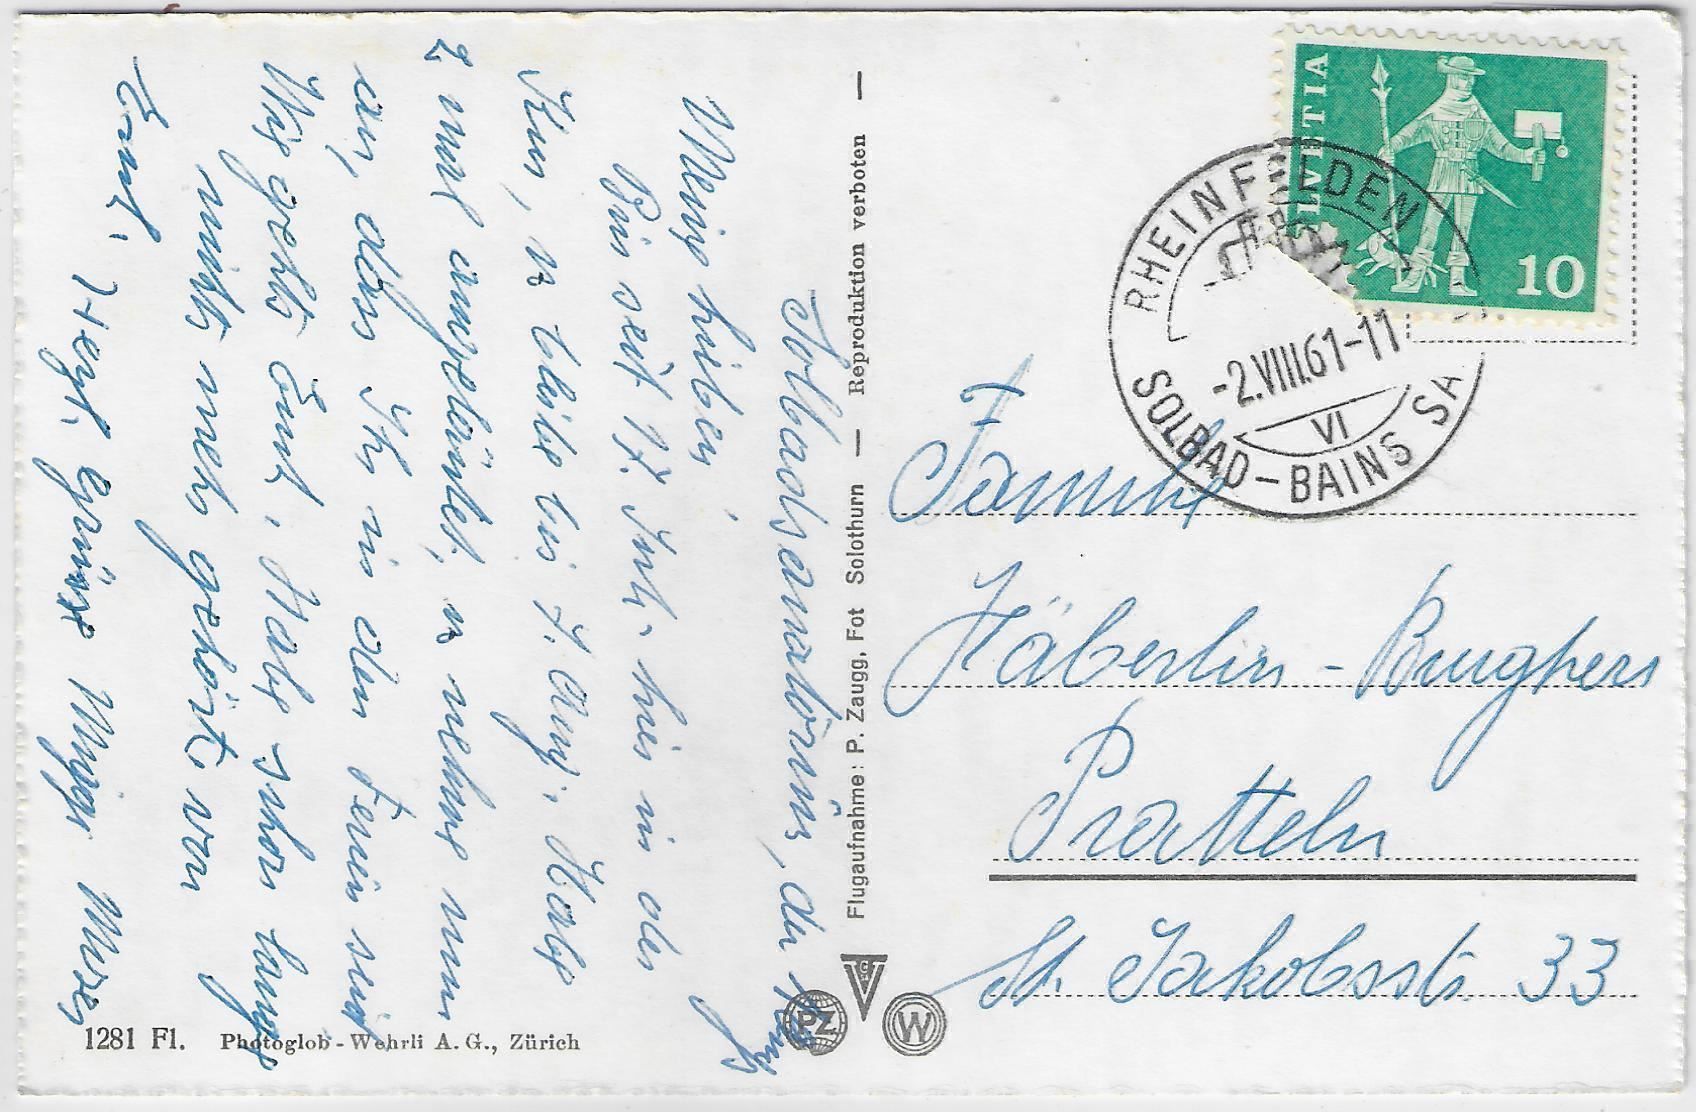 Solbadsanatorium, den
Meine Lieben,
Bin seit 17. Juli hier in der
Kur, u. bleibe bis 7. Aug. Habe
2 mal angeläutet, u. nehme nun
an, dass Ihr in den Ferien seid
Wie gehts Euch, Habe schon lange
nichts mehr gehört von
Euch.
Herzl. Grüsse
1281 Fl. Photoglob-Wehrli A.G., Zürich
Flugaufnahme: P. Zaugg, Fot Solothurn — Reproduktion verboten —
PZ
W
HELVETIA
10
RHEINFELDEN
-2.VIII.61-11
VI
SOLBAD-BAINS SA
Familie
Häberlin-Brugger
Pratteln
St. Jakobsstr. 33